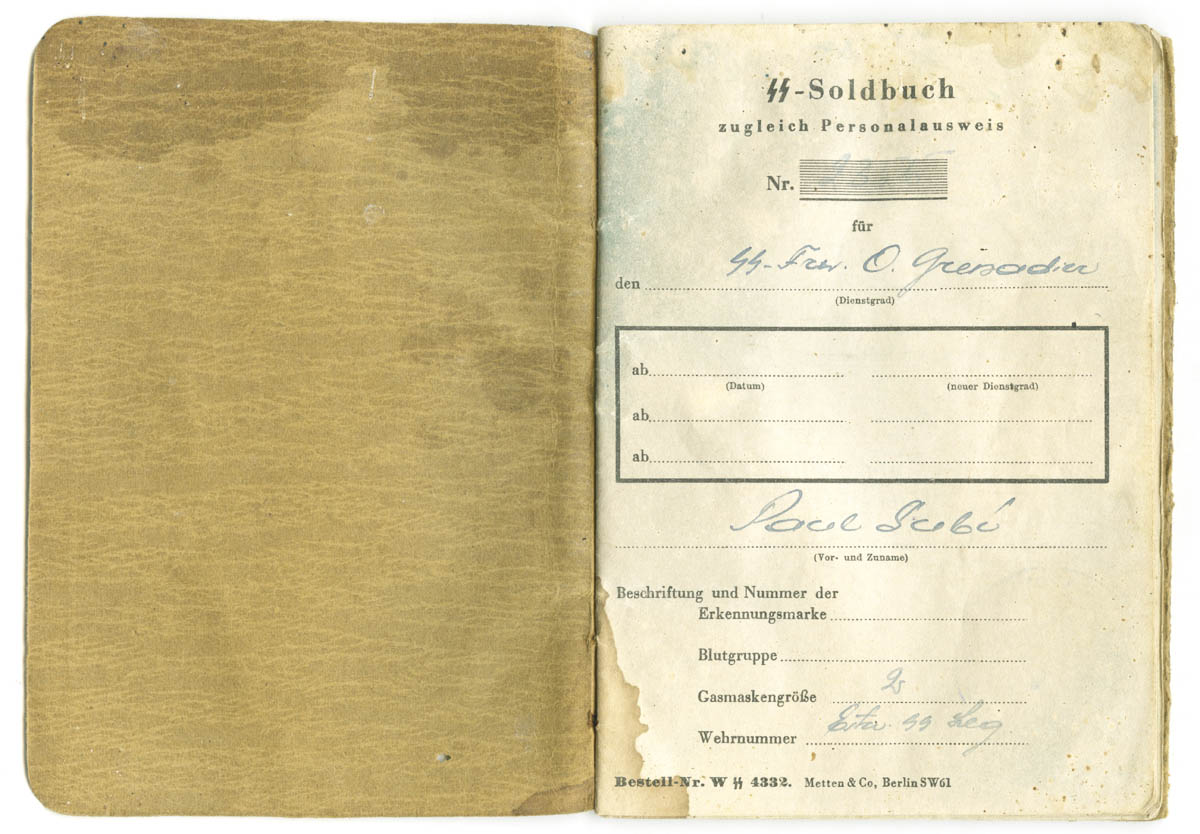 SS-Soldbuch
zugleich Personalausweis
Nr.
für
den SS-Frw. O. Grenadier
(Dienstgrad)
ab
(Datum) (neuer Dienstgrad)
ab
ab
Paul
(Vor- und Zuname)
Beschriftung und Nummer der
Erkennungsmarke
Blutgruppe
Gasmaskengröße 2
Wehrnummer SS Leg
Bestell-Nr. W SS 4332. Metten & Co, Berlin SW61